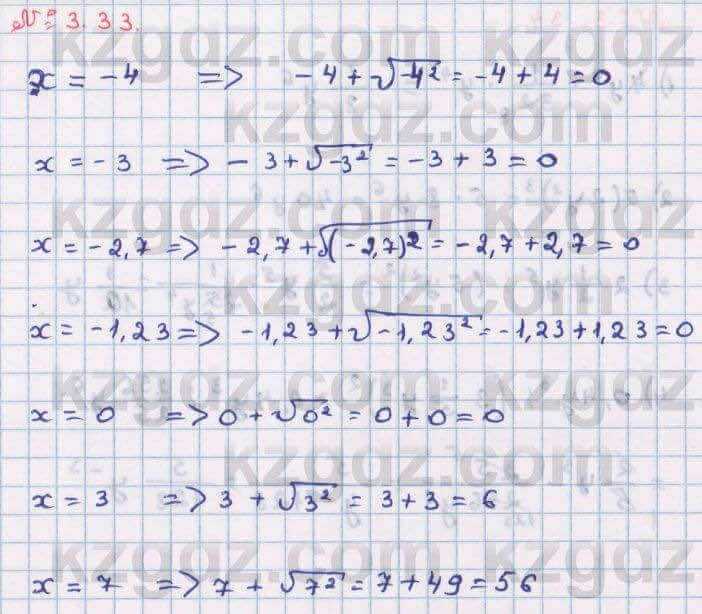 № 3.33.
x = -4 => -4 + √-4² = -4 + 4 = 0
x = -3 => -3 + √-3² = -3 + 3 = 0
x = -2,7 => -2,7 + √(-2,7)² = -2,7 + 2,7 = 0
x = -1,23 => -1,23 + √-1,23² = -1,23 + 1,23 = 0
x = 0 => 0 + √0² = 0 + 0 = 0
x = 3 => 3 + √3² = 3 + 3 = 6
x = 7 => 7 + √7² = 7 + 49 = 56
kzgdz.com kzgdz
kzgdz.com
kzgdz.com kzgdz
kzgdz.com
kzgdz.com kzgdz
kzgdz.com
kzgdz.com kzgdz